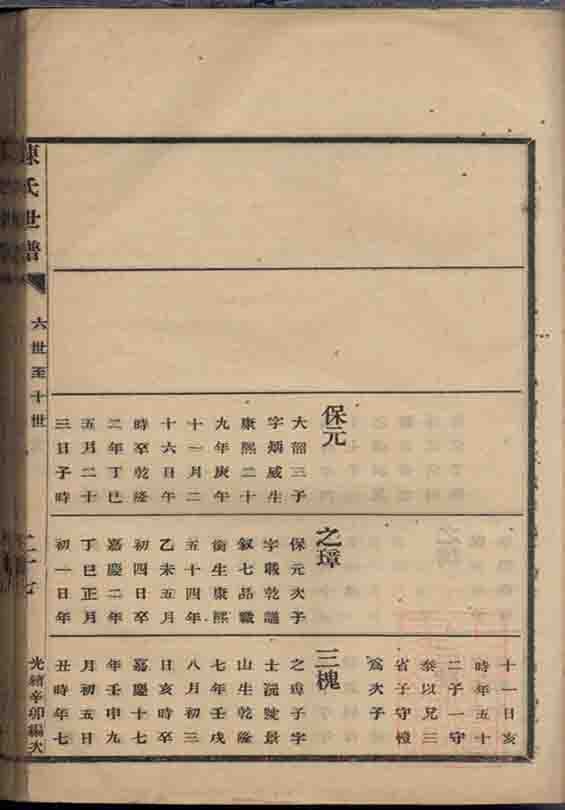 十一日亥
時年五十
二子一守
泰以兄三
省子守憻
為次子
保元
大韶三子
字炳威生
康熙二十
九年庚午
十一月二
十六日午
時卒乾隆
二年丁巳
五月二十
三日子時
之璋
保元次子
字載乾議
叙七品職
銜生康熙
五十四年
乙未五月
初四日卒
嘉慶二年
丁巳正月
初一日年
三槐
之璋子字
士浣號景
山生乾隆
七年壬戌
八月初三
日亥時卒
嘉慶十七
年壬申九
月初五日
丑時年七
陳氏世譜
六世至十世
二十七
光緒辛卯編次